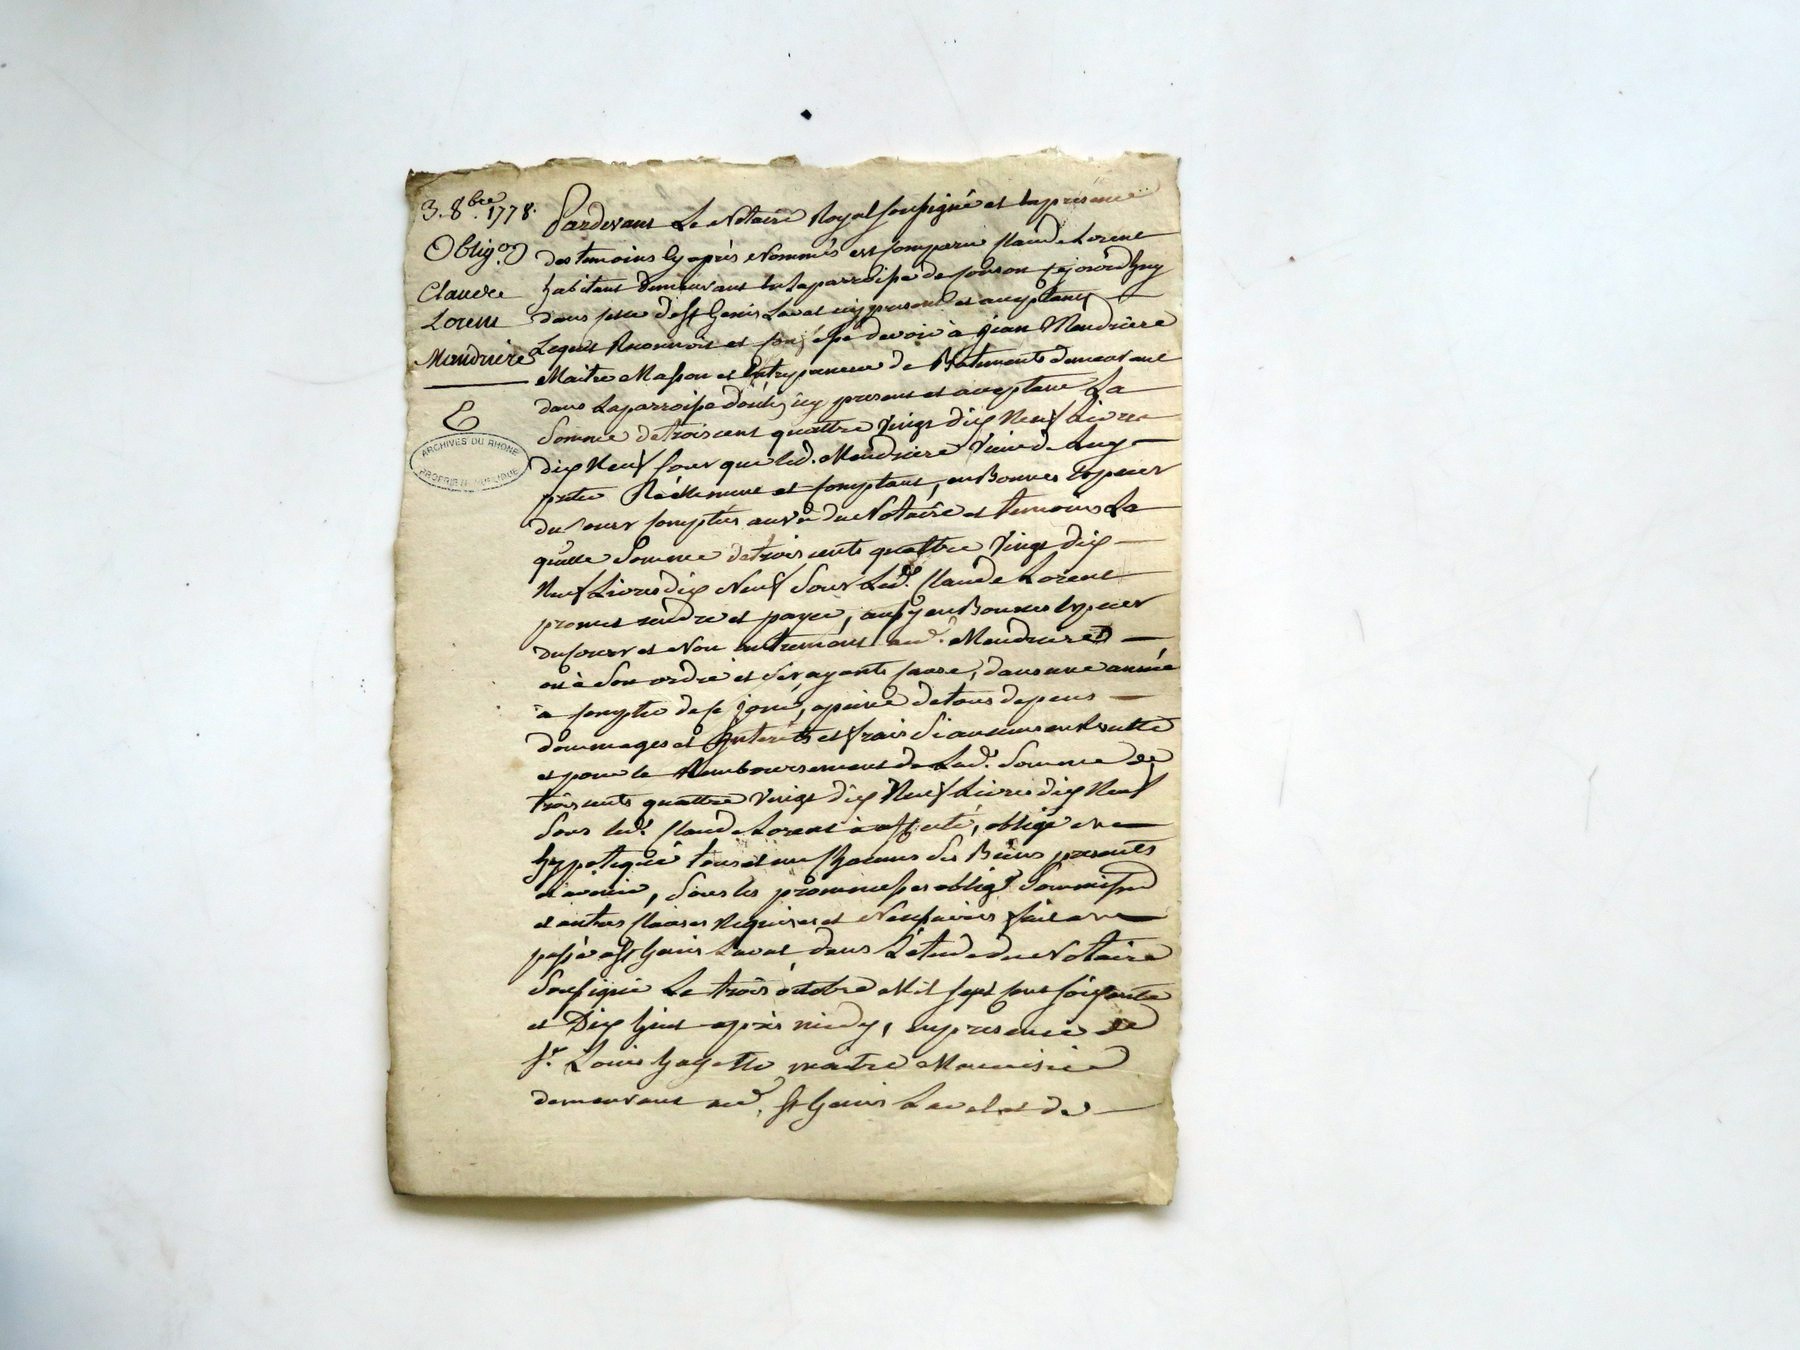 3. 8bre 1778.
Obligon
Claude
Lorent
Mendriere
ARCHIVES DU RHONE
PROPRIETE PUBLIQUE
Pardevant Le Notaire Royal soussigné et en presence
des temoins cy après Nommés est comparu Claude Lorent
habitant demeurant en la parroisse de
dans celle de St Genis Laval icy present et acceptant
Lequel Reconnoit et confesse devoir à jean Mendriere
Maitre Masson et Entrepreneur de Batiments demeurant
dans la parroisse icy present et acceptant La
Somme de trois cent quattre vingt dix Neuf Livres
dix Neuf sous que led. Mendriere vient de luy
preter Réellement et comptant, en Bonnes Especes
du cours comptées au vû du Notaire et temoins La
quelle Somme de trois cents quattre vingt dix
Neuf Livres dix Neuf Sous Led. Claude Lorent
promet rendre et payer, aussy en Bonnes Especes
du cours et Non autrement aud. Mendriere
ou à Son ordre et Ses ayants cause, dans une année
a compter de ce jour, a peine de tous depens
dommages et Interêts et frais
et pour le Remboursement de Lad. Somme de
trois cents quattre vingt dix Neuf Livres dix Neuf
Sous led. Claude Lorent a affecté, obligé et
hypotequé tous et un Chacuns Ses Biens presents
et avenir, Sous les promesses oblign Soumission
et autres Clauses Requises et Necessaires fait et
passé a St Genis Laval dans L'étude du Notaire
Soussigné Le trois octobre Mil sept cent soixante
et Dix huit après midy, en presence de
Sr. Louis maitre Menuisier
demeurant aud. St Genis Laval et de